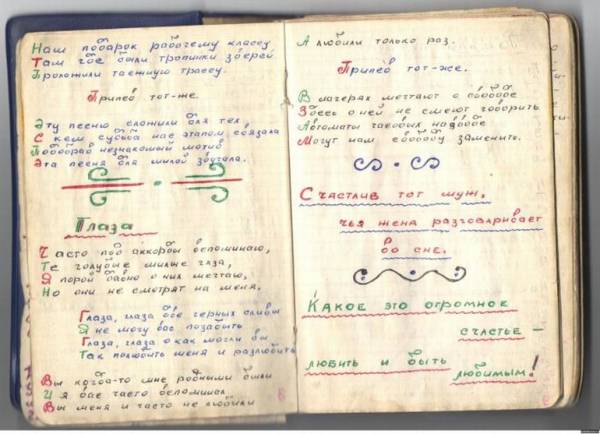 Наш подарок рабочему классу
Там где были тропинки зверей
Проложили таежную трассу.
Припев тот-же.
Эту песню сложили для тех,
С кем судьба нас этапом связала
Подобрав незнакомый мотив
Эта песня для милой звучала.
Глаза
Часто под аккорды вспоминаю,
Те голубые милые глаза,
Я порой давно о них мечтаю,
Но они не смотрят на меня.
Глаза, глаза две черных сливы
Я не могу вас позабыть
Глаза, глаза о как могли вы
Так полюбить меня и разлюбить
Вы когда-то мне родными были
И я вас часто вспоминал
Вы меня и часто не любили
А любили только раз.
Припев тот-же.
В лагерях мечтают о свободе
Здесь о ней не смеют говорить
Автоматы часовых на взводе
Могут нам свободу заменить.
Счастлив тот муж,
чья жена разговаривает
во сне.
Какое это огромное
счастье –
любить и быть
любимым!